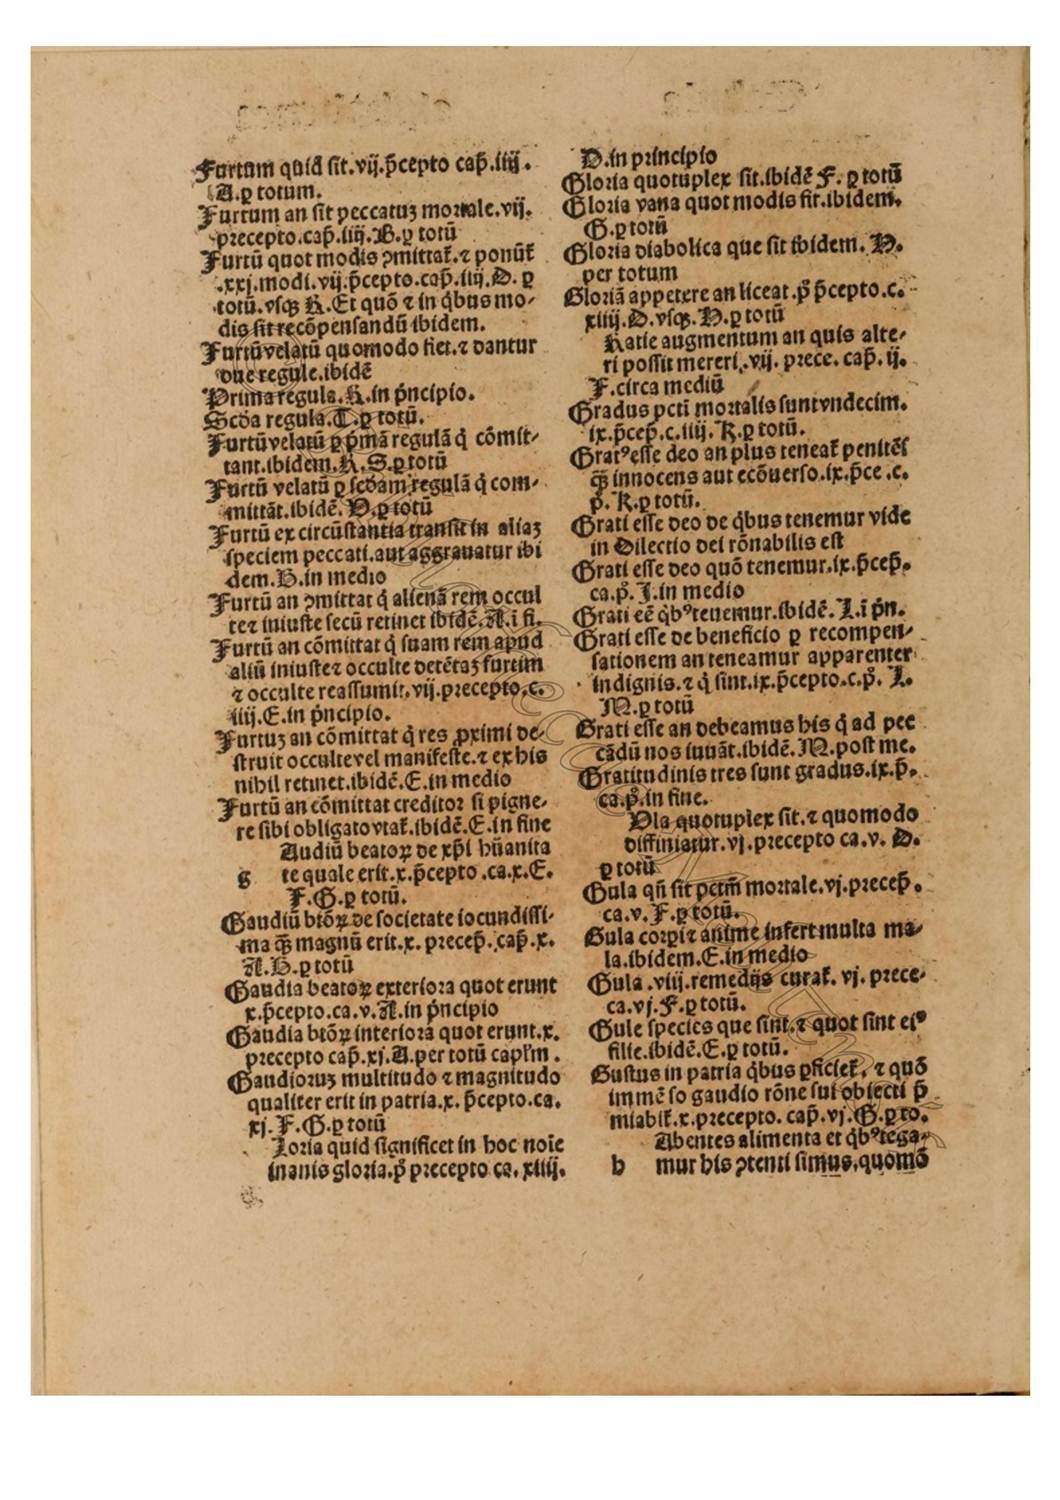 Furtum quid sit.vij.p̄cepto cap̄.iiij.
A.ꝑ totum.
Furtum an sit peccatuꝫ mortale.vij.
precepto.cap̄.iiij.B.ꝑ totū
Furtū quot modis ꝯmittat᷑.⁊ ponūt᷑
.xxj.modi.vij.p̄cepto.cap̄.iiij.D.ꝑ
totū.vsqꝫ K.Et quō ⁊ in q̇bus mo-
dis fit recōpensandū ibidem.
Furtū velatū quomodo fiet.⁊ dantur
due regule.ibidē
Prima regula.K.in pͥncipio.
Scd̄a regula.T.ꝑ totū.
Furtū velatū ꝑ pͥmā regulā q̇ cōmit-
tant.ibidem.R.S.ꝑ totū
Furtū velatū ꝑ scd̄am regulā q̇ com-
mittāt.ibidē.V.ꝑ totū
Furtū ex circūstantia transit in aliaꝫ
speciem peccati.aut aggrauatur ibi
dem.H.in medio
Furtū an ꝯmittat q̇ alienā rem occul
te⁊ iniuste secū retinet ibidē.A.ī fi.
Furtū an cōmittat q̇ suam rem apud
aliū iniuste⁊ occulte detētaꝫ furtim
⁊ occulte reassumit.vij.precepto.c.
iiij.E.in pͥncipio.
Furtuꝫ an cōmittat q̇ res ꝓximi de-
struit occulte vel manifeste.⁊ ex his
nihil retinet.ibidē.E.in medio
Furtū an cōmittat creditor si pigne-
re sibi obligato vtat᷑.ibidē.E.in fine
Audiū beatoꝝ de xp̄i hūanita
g te quale erit.x.p̄cepto.ca.x.E.
F.G.ꝑ totū.
Gaudiū btōꝝ de societate iocundissi-
ma qꝫ̄ magnū erit.x. precep̄.cap̄.x.
A.H.ꝑ totū
Gaudia beatoꝝ exteriora quot erunt
x.p̄cepto.ca.v.A.in pͥncipio
Gaudia btōꝝ interiora quot erunt.x.
precepto cap̄.xj.A.per totū capl'm.
Gaudioruꝫ multitudo ⁊ magnitudo
qualiter erit in patria.x. p̄cepto.ca.
xj.F.G.ꝑ totū
Loria quid significet in hoc noīe
inanis gloria.pͦ precepto ca.xiiij.
D.in principio
Gloria quotuplex sit.ibidē F.ꝑ totū
Gloria vana quot modis fit.ibidem.
G.ꝑ totū
Gloria diabolica que sit ibidem.H.
per totum
Gloriā appetere an liceat.pͦ p̄cepto.c.
xiiij.D.vsqꝫ.H.ꝑ totū
Ratie augmentum an quis alte-
ri possit mereri.vij. prece. cap̄. ij.
F.circa mediū
Gradus pcti mortalis sunt vndecim.
ix.p̄cep̄.c.iiij.K.ꝑ totū.
Gratꝰ esse deo an plus teneat᷑ penitēs
qꝫ̄ innocens aut ecōuerso.ix.p̄ce.c.
pͦ.K.ꝑ totū.
Grati esse deo de q̇bus tenemur vide
in Dilectio dei rōnabilis est
Grati esse deo quō tenemur.ix.p̄cep̄.
ca.pͦ.J.in medio
Grati eē q̇bꝰ teuemur.ibidē.L.ī pͥn.
Grati esse de beneficio ꝑ recompen-
sationem an teneamur apparenter
indignis.⁊ q̇ sint.ix.p̄cepto.c.pͦ. L.
M.ꝑ totū
Grati esse an debeamus his q̇ ad pec
cādū nos iuuāt.ibidē.M.post me.
Gratitudinis tres sunt gradus.ix.p̄.
ca.pͦ.in fine.
Vla quotuplex sit.⁊ quomodo
diffiniatur.vj.precepto ca.v. D.
ꝑ totū
Gula qn̄ sit pctm̄ mortale.vj.precep̄.
ca.v.F.ꝑ totū.
Gula corpi⁊ anime infert multa ma-
la.ibidem.E.in medio
Gula .viij.remedijs curat᷑. vj. prece-
ca.vj.F.ꝑ totū.
Gule species que sint.⁊ quot sint eiꝰ
filie.ibidē.E.ꝑ totū.
Gustus in patria q̇bus ꝑficiet᷑.⁊ quō
immēso gaudio rōne sui obiecti p̄
miabit᷑.x.precepto. cap̄.vj.G.ꝑ to.
Abentes alimenta et q̇bꝰ tega-
h mur his ꝯtenti simus.quomō